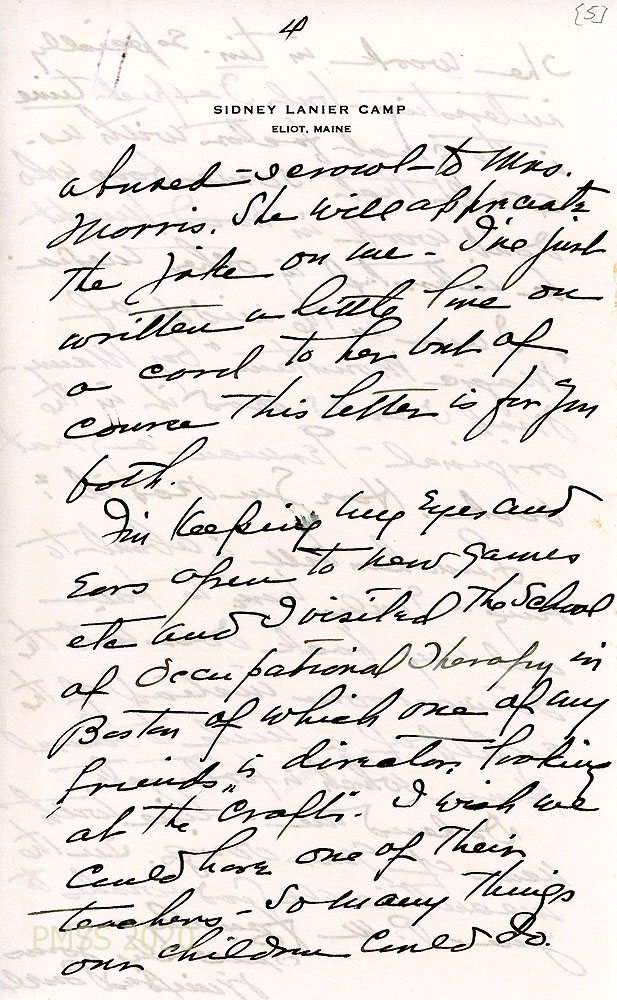 4
[5]
SIDNEY LANIER CAMP
ELIOT, MAINE
abused - scrowl - to Mrs.
Morris. She will appreciate
the joke on me - I've just
written a little line on
a card to her but of
course this letter is for you
both.
I'm keeping my eyes and
ears open to new games
etc and I visited the School
of Occupational Therapy in
Boston of which one of my
friends is director, looking
at the "crafts". I wish we
could have one of their
teachers - So many things
our children could do.
PMSS 2020